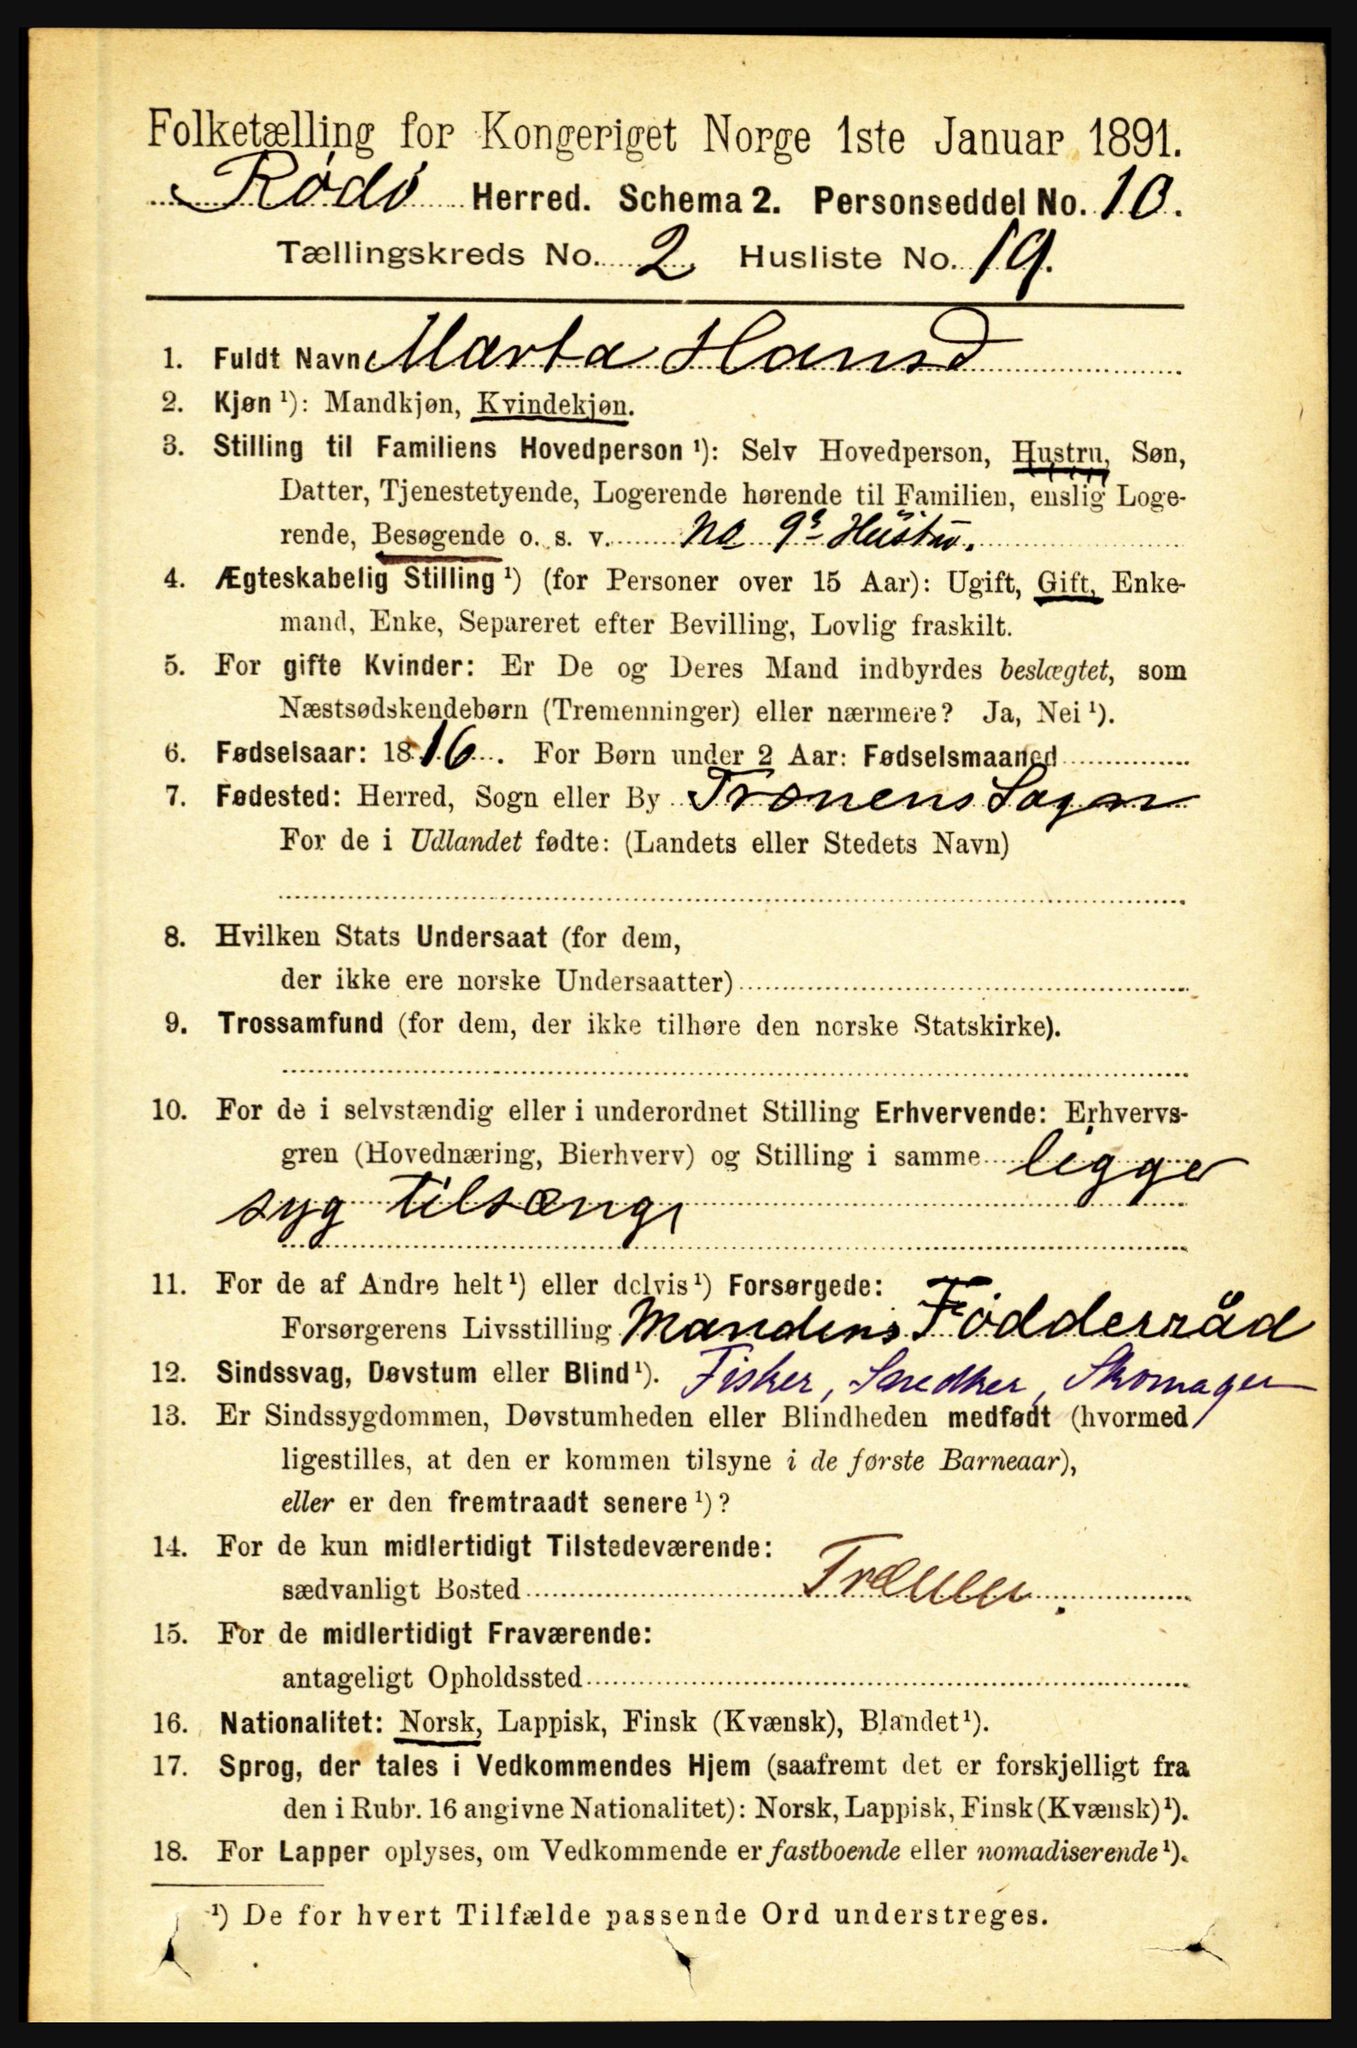 Folketælling for Kongeriget Norge 1ste Januar 1891.
Rødø Herred. Schema 2. Personseddel No. 10.
Tællingskreds No. 2 Husliste No. 19.
1. Fuldt Navn Marta Hansd
2. Kjøn ¹): Mandkjøn, Kvindekjøn.
3. Stilling til Familiens Hovedperson ¹): Selv Hovedperson, Hustru, Søn,
Datter, Tjenestetyende, Logerende hørende til Familien, enslig Loge-
rende, Besøgende o. s. v. No 9s Hustru.
4. Ægteskabelig Stilling ¹) (for Personer over 15 Aar): Ugift, Gift, Enke-
mand, Enke, Separeret efter Bevilling, Lovlig fraskilt.
5. For gifte Kvinder: Er De og Deres Mand indbyrdes beslægtet, som
Næstsødskendebørn (Tremenninger) eller nærmere? Ja, Nei ¹).
6. Fødselsaar: 1816. For Børn under 2 Aar: Fødselsmaaned
7. Fødested: Herred, Sogn eller By Trænens Sogn
For de i Udlandet fødte: (Landets eller Stedets Navn)
8. Hvilken Stats Undersaat (for dem,
der ikke ere norske Undersaatter)
9. Trossamfund (for dem, der ikke tilhøre den norske Statskirke).
10. For de i selvstændig eller i underordnet Stilling Erhvervende: Erhvervs-
gren (Hovednæring, Bierhverv) og Stilling i samme ligger
syg tilsængs
11. For de af Andre helt ¹) eller delvis ¹) Forsørgede:
Forsørgerens Livsstilling Mandens Födderråd
12. Sindssvag, Døvstum eller Blind ¹). Fisker, Snedker, Skomager
13. Er Sindssygdommen, Døvstumheden eller Blindheden medfødt (hvormed
ligestilles, at den er kommen tilsyne i de første Barneaar),
eller er den fremtraadt senere ¹)?
14. For de kun midlertidigt Tilstedeværende:
sædvanligt Bosted Trænen.
15. For de midlertidigt Fraværende:
antageligt Opholdssted
16. Nationalitet: Norsk, Lappisk, Finsk (Kvænsk), Blandet ¹).
17. Sprog, der tales i Vedkommendes Hjem (saafremt det er forskjelligt fra
den i Rubr. 16 angivne Nationalitet): Norsk, Lappisk, Finsk (Kvænsk) ¹).
18. For Lapper oplyses, om Vedkommende er fastboende eller nomadiserende ¹).
¹) De for hvert Tilfælde passende Ord understreges.